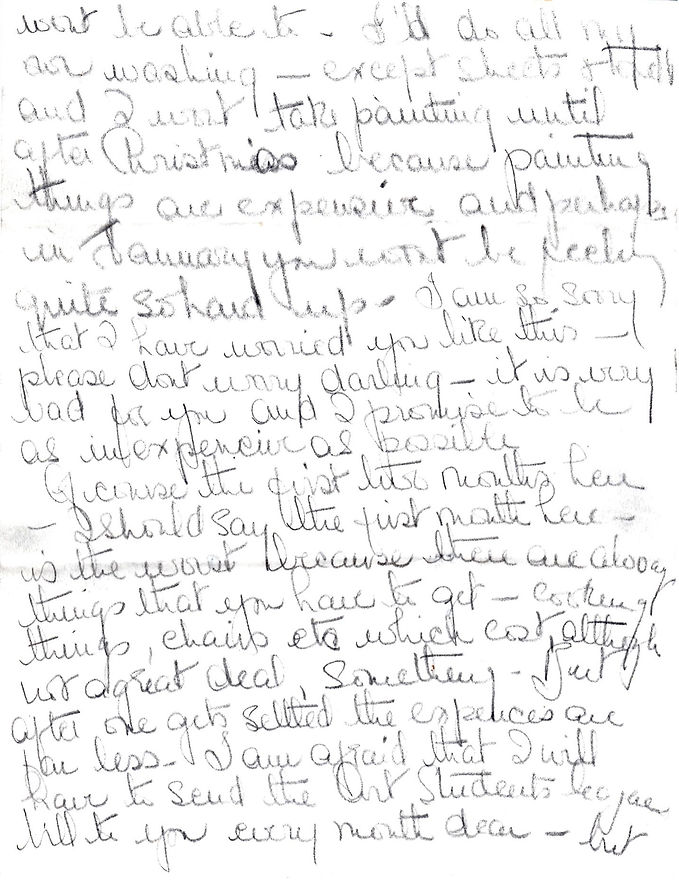 wont be able to - I'd do all my
own washing - except sheets & towels
and I wont take painting until
after Christmas because painting
things are expensive and perhaps
in January you wont be feeling
quite so hard up. I am so sorry
that I have worried you like this -
please dont worry darling - it is very
bad for you and I promise to be
as inexpencive as possible
Of course the first two months here
- I should say the first month here -
is the worst because there are always
things that you have to get - cooking
things, chairs etc which cost, although
not a great deal, something - But
after one gets settled the expences are
far less - I am afraid that I will
have to send the Art Students league
bill to you every month dear - but